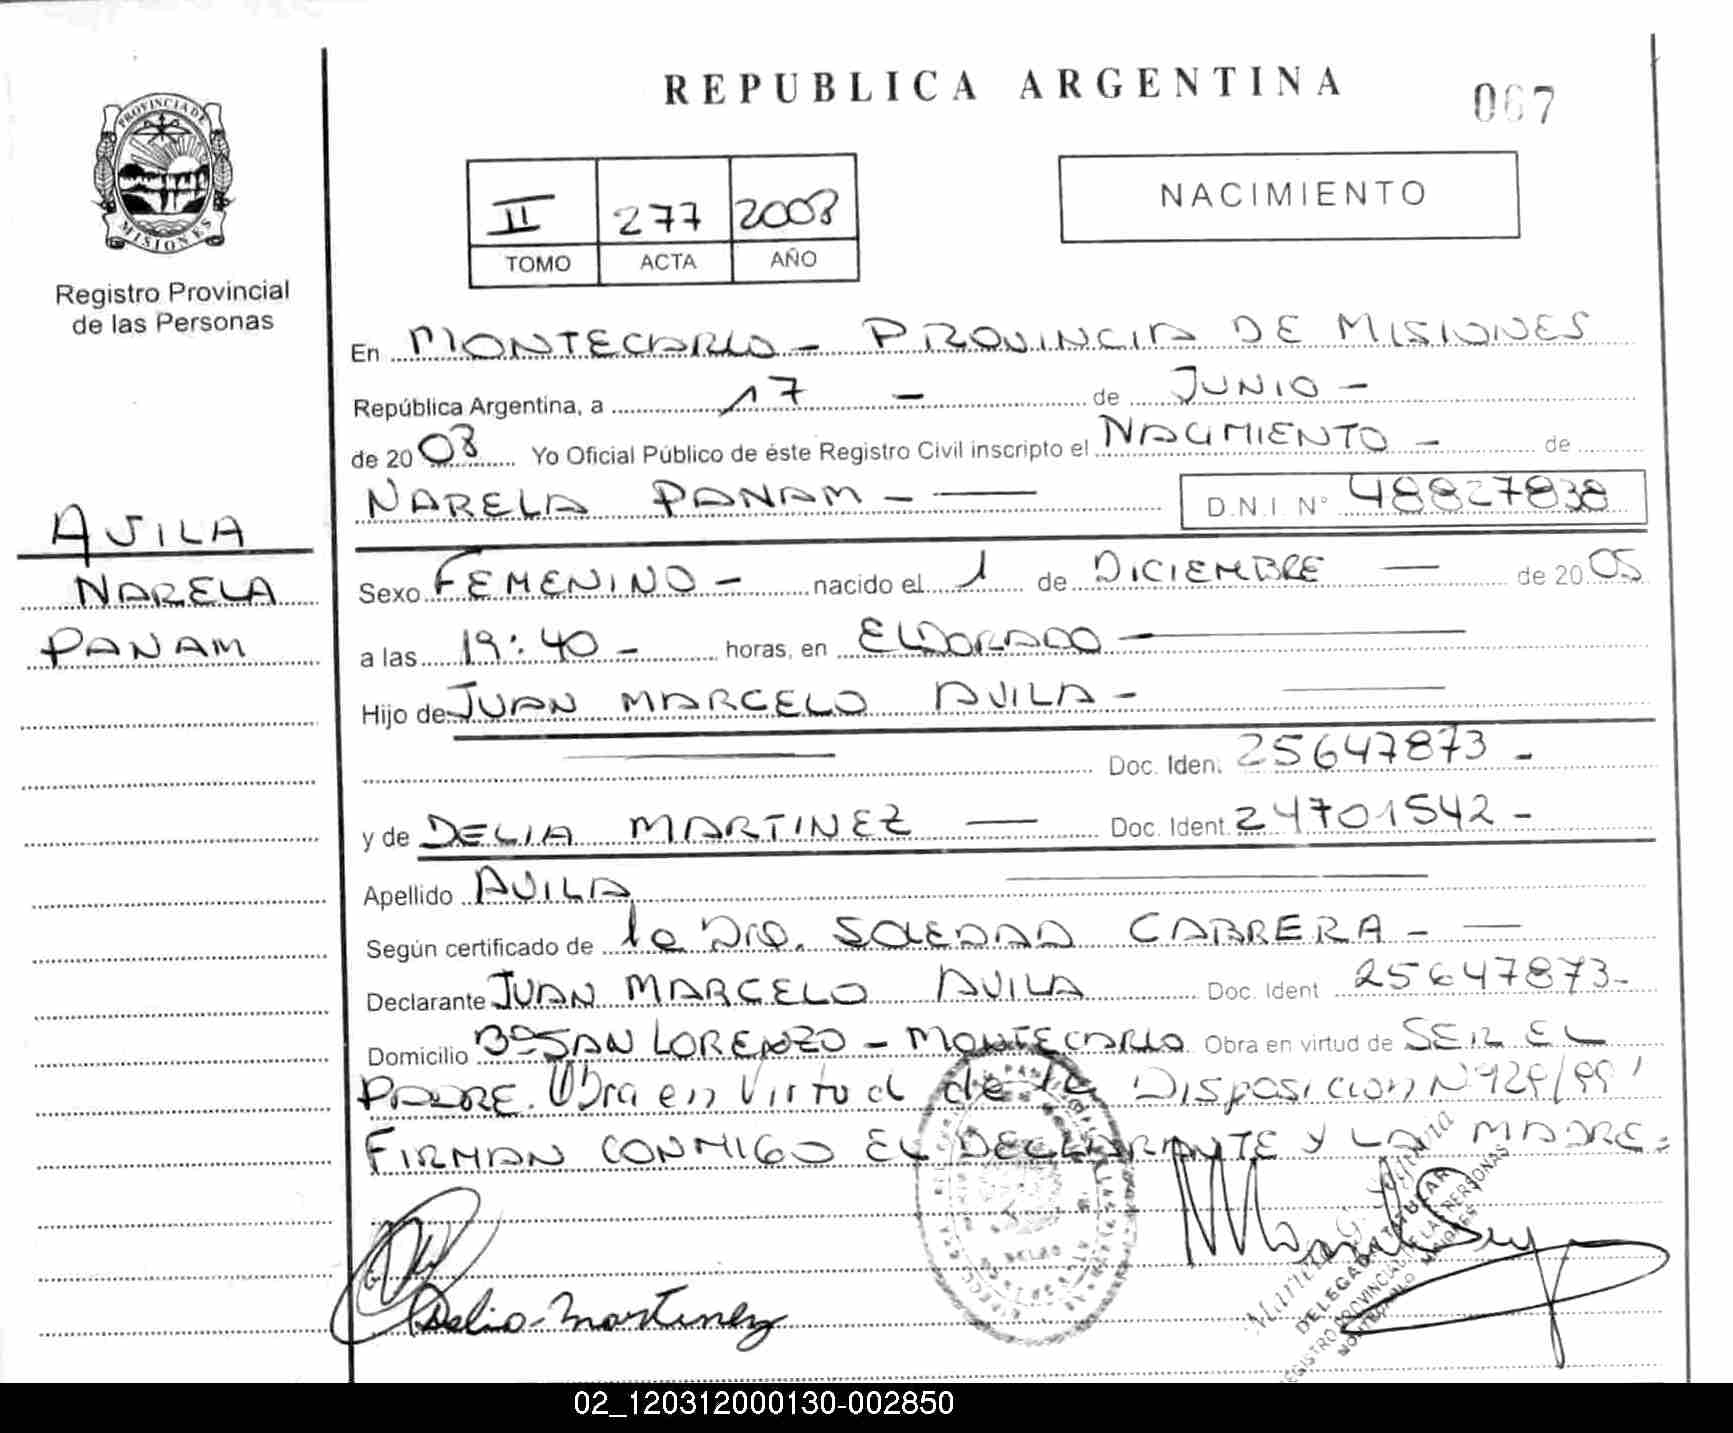 REPUBLICA ARGENTINA
067
PROVINCIA DE
MISIONES
Registro Provincial
de las Personas
II 277 2008
TOMO ACTA AÑO
NACIMIENTO
En MONTECARLO - PROVINCIA DE MISIONES
República Argentina, a 17 - de JUNIO -
de 2008 Yo Oficial Público de éste Registro Civil inscripto el NACIMIENTO - de
NARELA PANAM - D.N.I N° 48827838
AVILA
NARELA
PANAM
Sexo FEMENINO - nacido el 1 de DICIEMBRE - de 2005
a las 19:40 - horas, en ELDORADO -
Hijo de JUAN MARCELO AVILA -
Doc. Iden. 25647873 -
y de DELIA MARTINEZ - Doc. Ident. 24701542 -
Apellido AVILA
Según certificado de la Dra. SOLEDAD CABRERA -
Declarante JUAN MARCELO AVILA Doc. Ident 25647873 -
Domicilio Bº SAN LORENZO - MONTECARLO Obra en virtud de SER EL
PADRE. Obra en Virtud de la Disposicion Nº 29/99
FIRMAN CONMIGO EL DECLARANTE Y LA MADRE =
Delia Martinez
DELEGADA TITULAR
REGISTRO PROVINCIAL DE LAS PERSONAS
MONTECARLO MISIONES
02_120312000130-002850